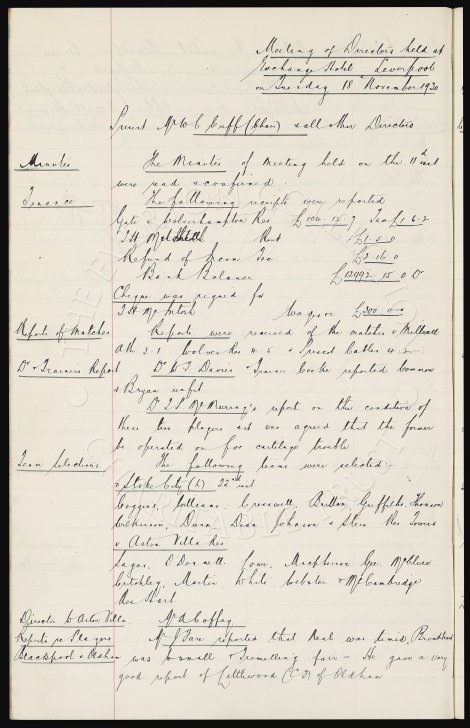 Meeting of Directors held at
Exchange Hotel Liverpool
on Tuesday 18 November 1930
Present Mr W C Cuff (Chair) & all other Directors
Minutes The Minutes of Meeting held on the 11th inst
were read & confirmed.
Finance The following receipts were reported
Gate Wolverhampton Res £ 7 Sea £1. 6. 2
T H Rent £1. 5. 0
Refund of Income Tax £2. 16. 0
Bank Balance £12992. 15. 0
Cheque was signed for
T H McIntosh Wages £300. 0. 0
Reports of Matches Reports were received of the matches v Millwall
Ath Wolves Res & Prescot Cables
Dr & Trainers Report Dr Davies & Trainer Cooke reported Common
& Bryan unfit
Dr McMurray's report on the condition of
these two players and it was agreed that the former
be operated on for cartilage trouble
Team Selections The following teams were selected:-
v Stoke City (L) 22nd inst
Coggins, Williams, Cresswell, Britton, Griffiths, Thomson
Wilkinson, Dunn, Dean, Johnson & Stein Res Towers
v Aston Villa Res
Sagar, O'Donnell, Lowe, Macpherson, Gee, McClure
Critchley, Martin, White, Webster & McCambridge
Res Hart
Director to Aston Villa. Mr A Coffey
Reports re Players Mr J Fare reported that Neal was tried,
Blackpool & Oldham was small & Tremelling fair - He gave a very
good report of Littlewood (CF) of Oldham